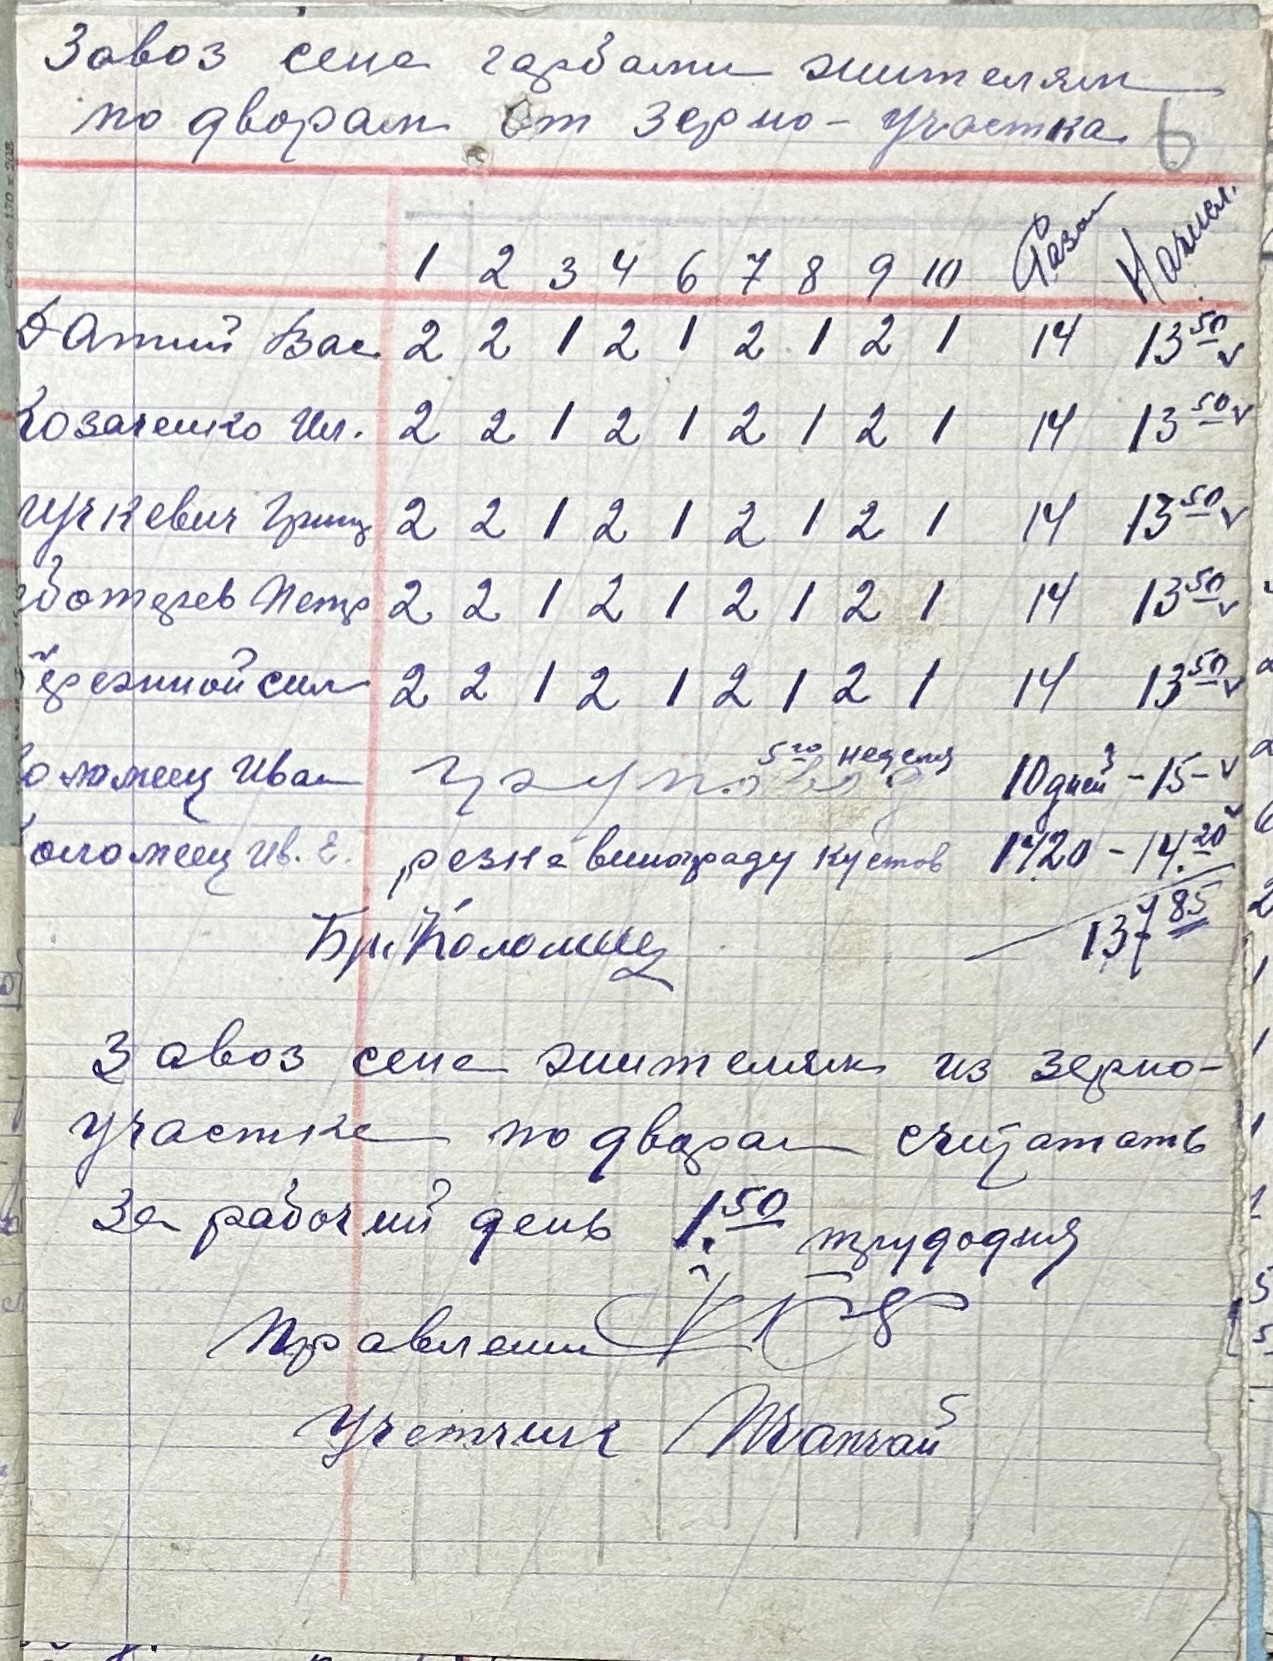 Завоз сена гарбами жителям
по дворам от зерно-участка 6
1 2 3 4 6 7 8 9 10 Разом Начисл.
Датий Вас. 2 2 1 2 1 2 1 2 1 14 13 50 v
Козаченко Ил. 2 2 1 2 1 2 1 2 1 14 13 50 v
Гриц 2 2 1 2 1 2 1 2 1 14 13 50 v
Петр 2 2 1 2 1 2 1 2 1 14 13 50 v
Бережной сил 2 2 1 2 1 2 1 2 1 14 13 50 v
Коломиец Иван неделя 10 дней - 15 - v
Коломиец Ив. Е. резка винограду кустов 1420 - 14.20 v
137 85
Бр. Коломиец
Завоз сена жителям из зерно-
участка по дворам считать
за рабочий день 1.50 трудодня
Правления
Учетчик